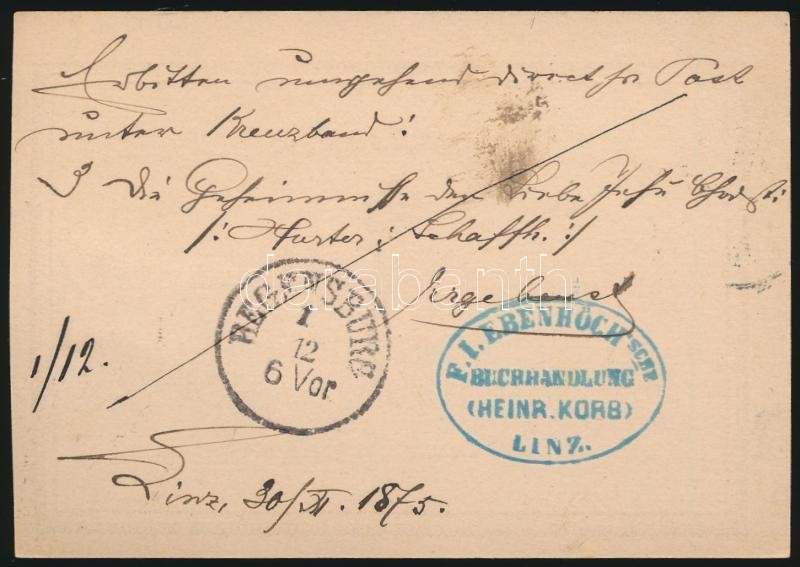 Erbitten umgehend direct pr Post
unter Kreuzband:
3 Die Geheimnisse der Liebe Jesu Christi:
/: Hurter; Schaffh. :/
Ergebenst
REGENSBURG
1
12
6 Vor.
F. I. EBENHÖCH'SCHE
BUCHHANDLUNG
(HEINR. KORB)
LINZ.
1/12.
Linz, 30/XI. 1875.
darabanth